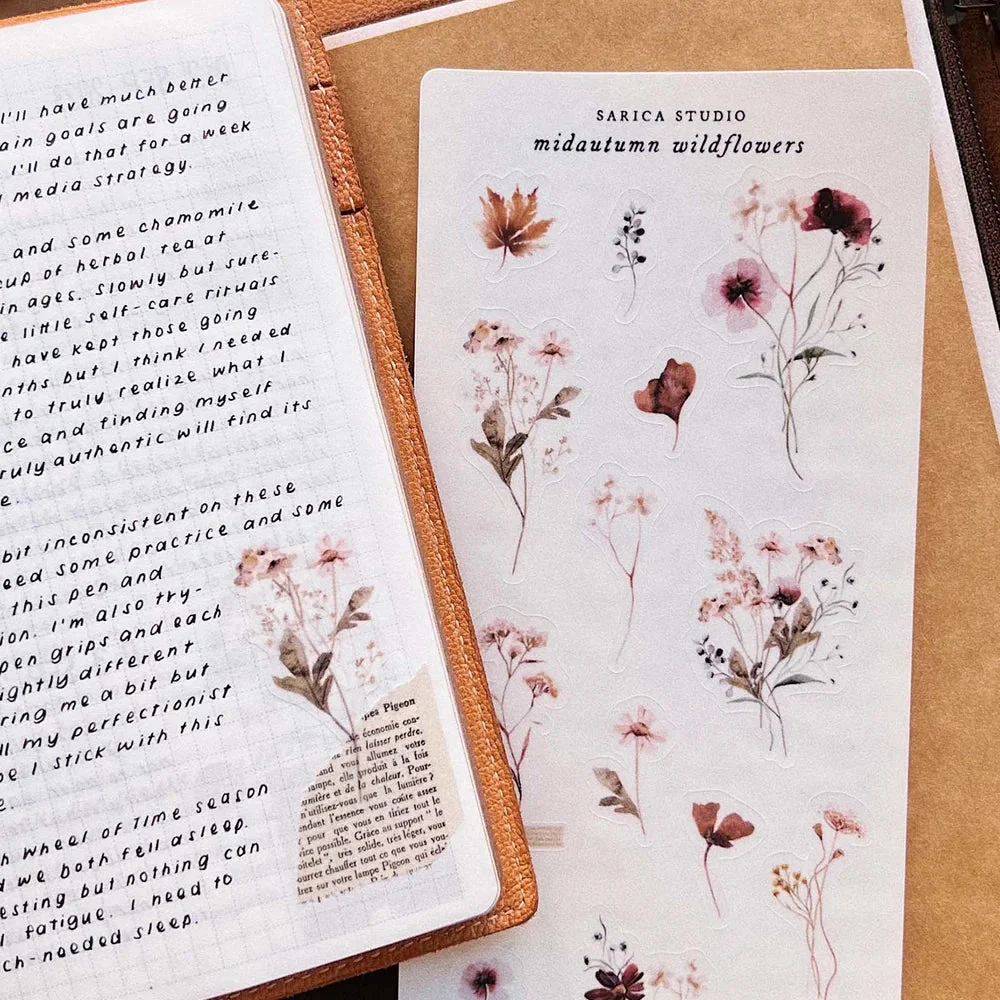 I'll have much better
ain goals are going
I'll do that for a week
media strategy.
and some chamomile
cup of herbal tea at
in ages. Slowly but sure-
little self-care rituals
have kept those going
nths but I think I needed
to truly realize what I
ce and finding myself
ruly authentic will find its
e.
bit inconsistent on these
eed some practice and some
this pen and
ion. I'm also try-
pen grips and each
ightly different
ring me a bit but
ll my perfectionist
be I stick with this
e.
h Wheel of Time season
d we both fell asleep.
esting but nothing can
l fatigue. I need to
ch-needed sleep.
pes Pigeon
économie con-
rien laisser perdre.
and vous allumez votre
ampe, elle produit à la fois
umière et de la chaleur. Pour-
n'utilisez-vous que la lumière?
endant l'essence vous coûte assez
pour que vous en tiriez tout le
vice possible. Grâce au support "le
oitelet", très solide, très léger, vous
ourrez chauffer tout ce que vous vou-
drez sur votre lampe Pigeon qui écl-
SARICA STUDIO
midautumn wildflowers